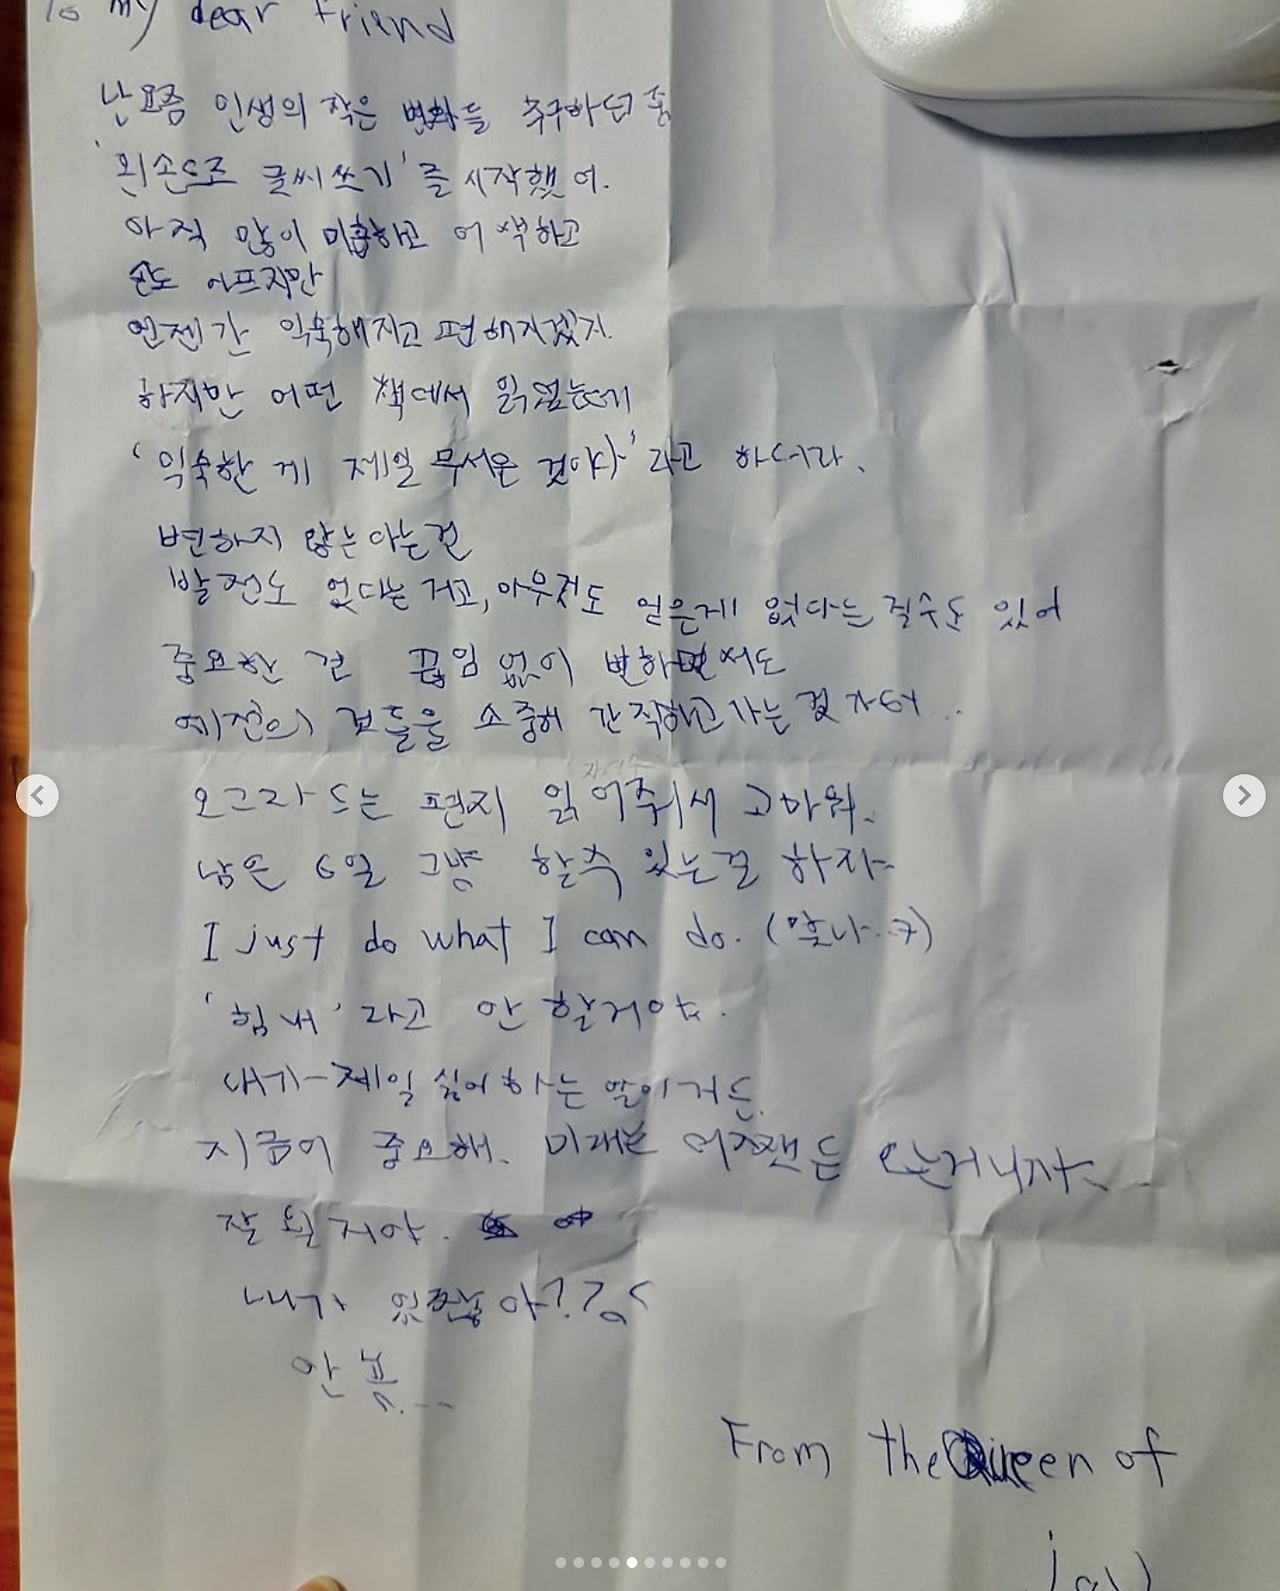 To my dear friend
난 요즘 인생의 작은 변화들 추구하던 중
'왼손으로 글씨쓰기'를 시작했어.
아직 많이 미흡하고 어색하고
손도 아프지만
언젠간 익숙해지고 편해지겠지.
하지만 어떤 책에서 읽었는데
'익숙한 게 제일 무서운 것이야'라고 하더라.
변하지 않는다는건
발전도 없다는 거고, 아무것도 얻은게 없다는 걸수도 있어
중요한 건 끊임 없이 변하면서도
예전의 것들을 소중히 간직하고 가는 것 자체...
오그라드는 편지 읽어줘서 고마워.
남은 6일 그냥 할 수 있는걸 하자
I just do what I can do. (맞나..ㅋ)
'힘내'라고 안 할거야.
내가 제일 싫어하는 말이거든.
지금이 중요해. 미래는 어쨌든 오는거니까
잘 될거야.
내가 있잖아?
안뇽...
From the Queen of